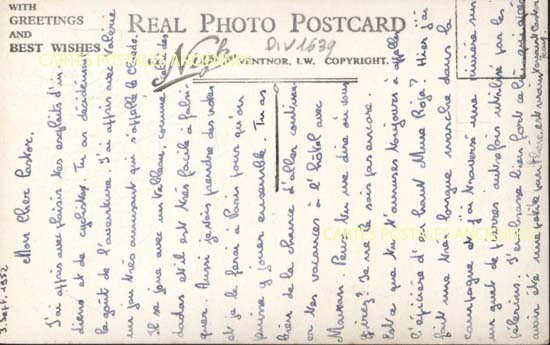 WITH
GREETINGS
AND
BEST WISHES
REAL PHOTO POSTCARD
Nigh
VENTNOR, I.W. COPYRIGHT.
DIV 1639
3 Sept. 1952
Mon cher Castor,
J'ai appris avec plaisir tes exploits d'in
diens et de cyclistes. Tu as décidément
le goût de l'aventure. J'ai appris avec Valérie
un jeu très amusant qui s'appelle le
Il se joue avec un tableau, comme celui des
dadas et il est très facile à fabri-
quer. Aussi je vais prendre des notes
et je le ferai à Paris pour qu'on
puisse y jouer ensemble. Tu as
bien de la chance d'aller continu-
er tes vacances à l'hôtel avec
Maman. Peux-tu me dire où vous
irez? Je ne le sais pas encore.
Est-ce que tu t'amuses toujours à appeler
l'épicière d'en haut Mme Raja? Hier j'ai
fait une très longue marche dans la
campagne et j'ai traversé une rivière sur
un guet de pierres autrefois utilisé par les
pèlerins. J'
avait été une petite